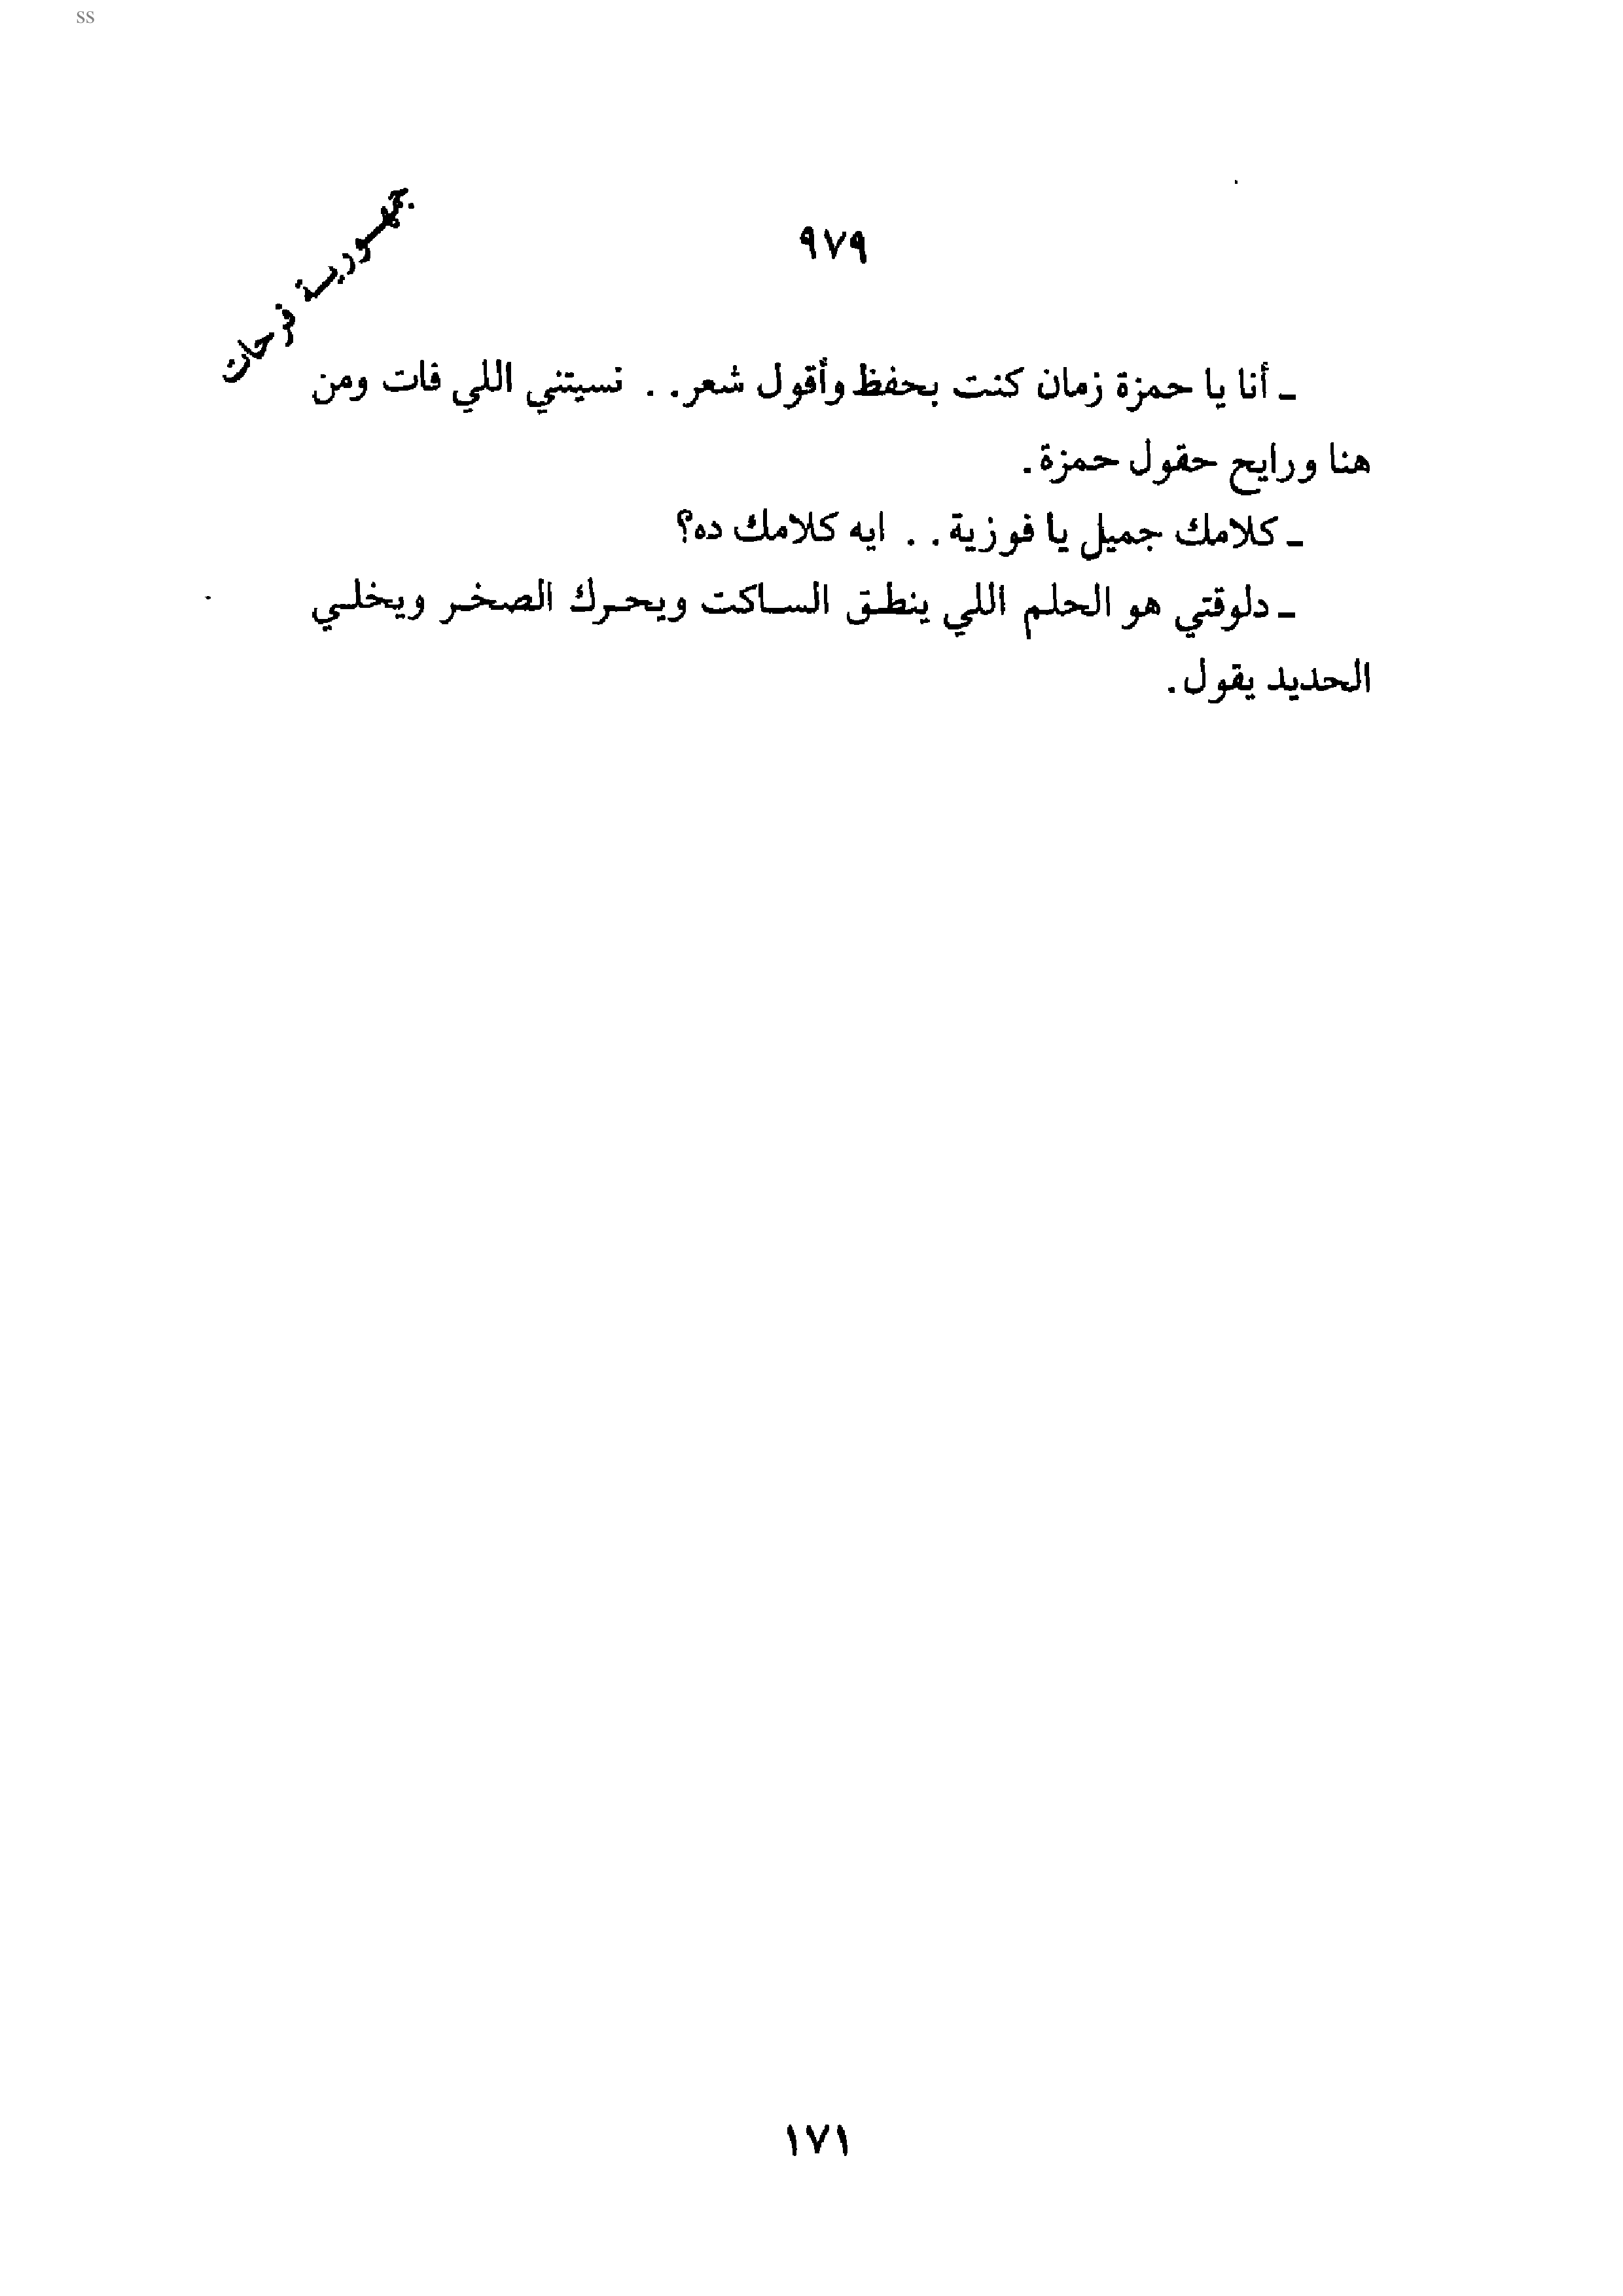 ss
جمهورية فرحات
٩٧٩
ـ أنا يا حمزة زمان كنت بحفظ وأقول شعر. . نسيتني اللي فات ومن
هنا ورايح حقول حمزة.
ـ كلامك جميل يا فوزية. . ايه كلامك ده؟
ـ دلوقتي هو الحلم اللي ينطق الساكت ويحرك الصخر ويخلي
الحديد يقول.
١٧١